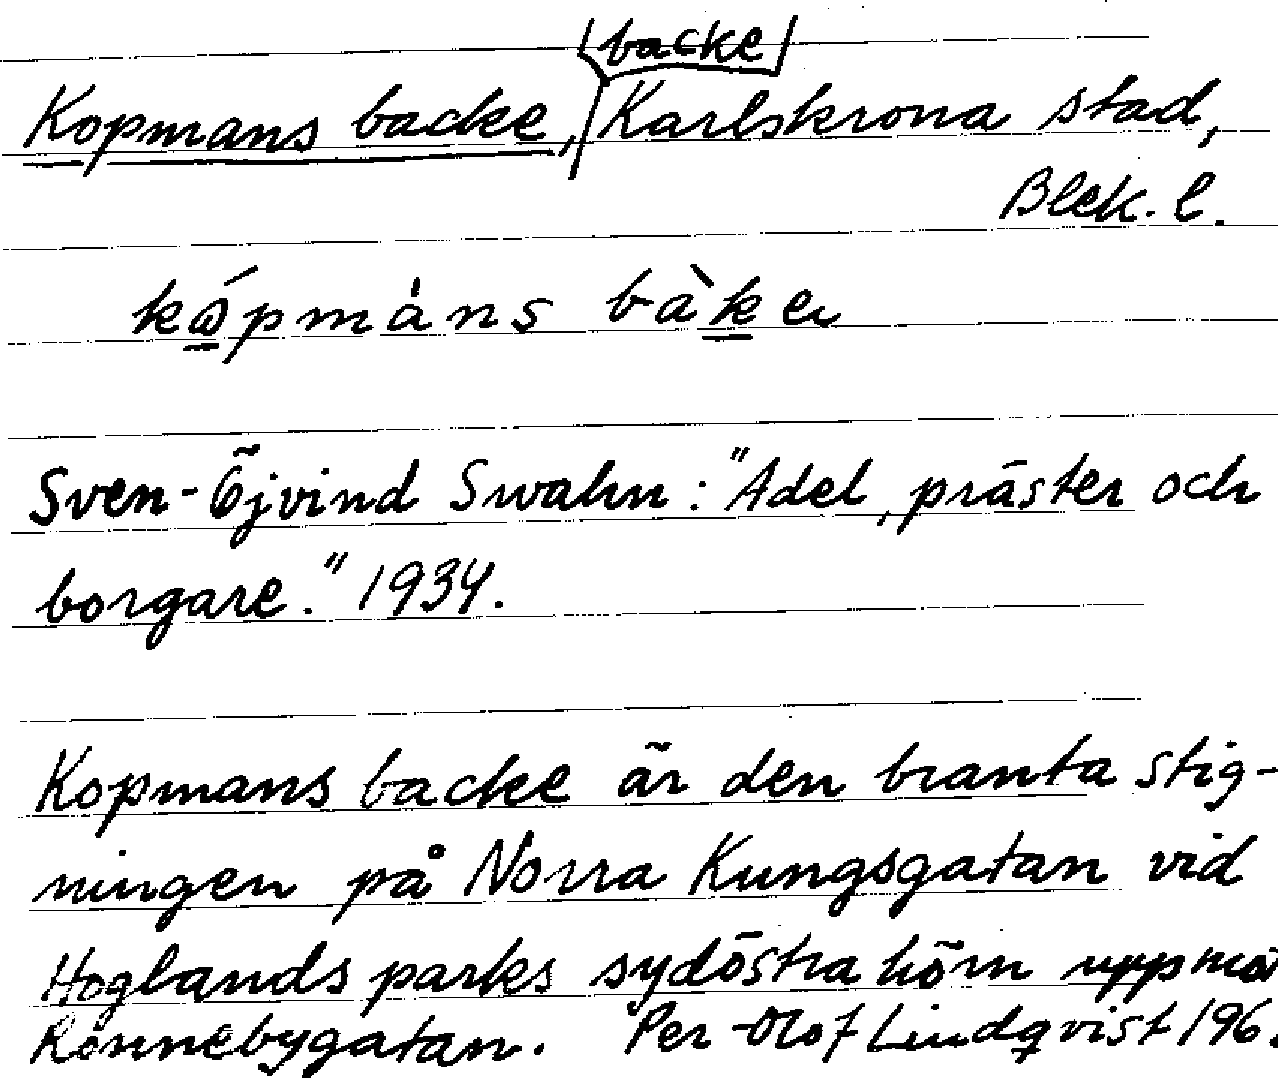 backe
Kopmans backe, Karlskrona stad,
Blek. l.
Sven-Öjvind Swahn: "Adel, präster och
borgare." 1934.
Kopmans backe är den branta stig-
ningen på Norra Kungsgatan vid
Hoglands parks sydöstra hörn uppmot
Ronnebygatan. Per-Olof Lindqvist 196